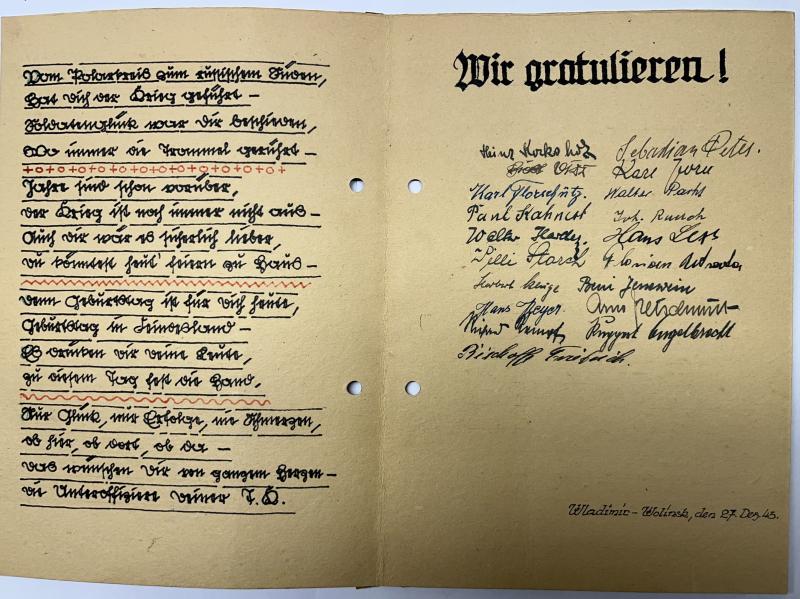 Vom Polarkreis zum russischem Süden,
Hat Dich der Krieg geführt –
Soldatenglück war Dir beschieden,
Wo immer die Trommel gerührt –
Jahre sind schon vorüber,
der Krieg ist noch immer nicht aus –
Auch dir wär es sicherlich lieber,
du könntest heut' feiern zu Haus –
Dein Geburtstag ist für Dich heute,
Geburtstag in Feindesland –
Es drücken dir deine Leute,
zu diesem Tag fest die Hand.
Nur Glück, nur Erfolge, nie Schmerzen,
ob hier, ob dort, ob da –
das wünschen Dir von ganzem Herzen –
die Unteroffiziere Deiner T.K.
Wir gratulieren!
Heinz Sebastian Peter.
Karl
Karl Walter
Paul Kahnert Joh. Rausch
Walter Hardy Hans
Willi Storch Florian
Herbert
Hans Meyer Arno
Ruppert Engelbrecht
Bischoff Friedrich.
Wladimir – Wolinsk, den 27. Dez. 43.